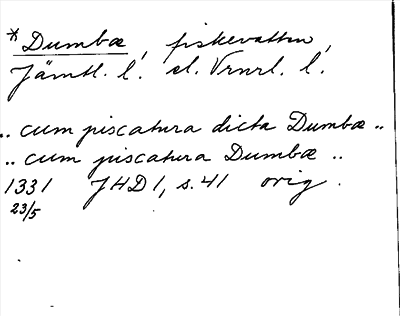 *Dumbæ, fiskevatten,
Jämtl. l. el. Vrnrl. l.
.. cum piscatura dicta Dumbæ ..
.. cum piscatura Dumbæ ..
1331 JHD 1, s. 41 orig.
23/5